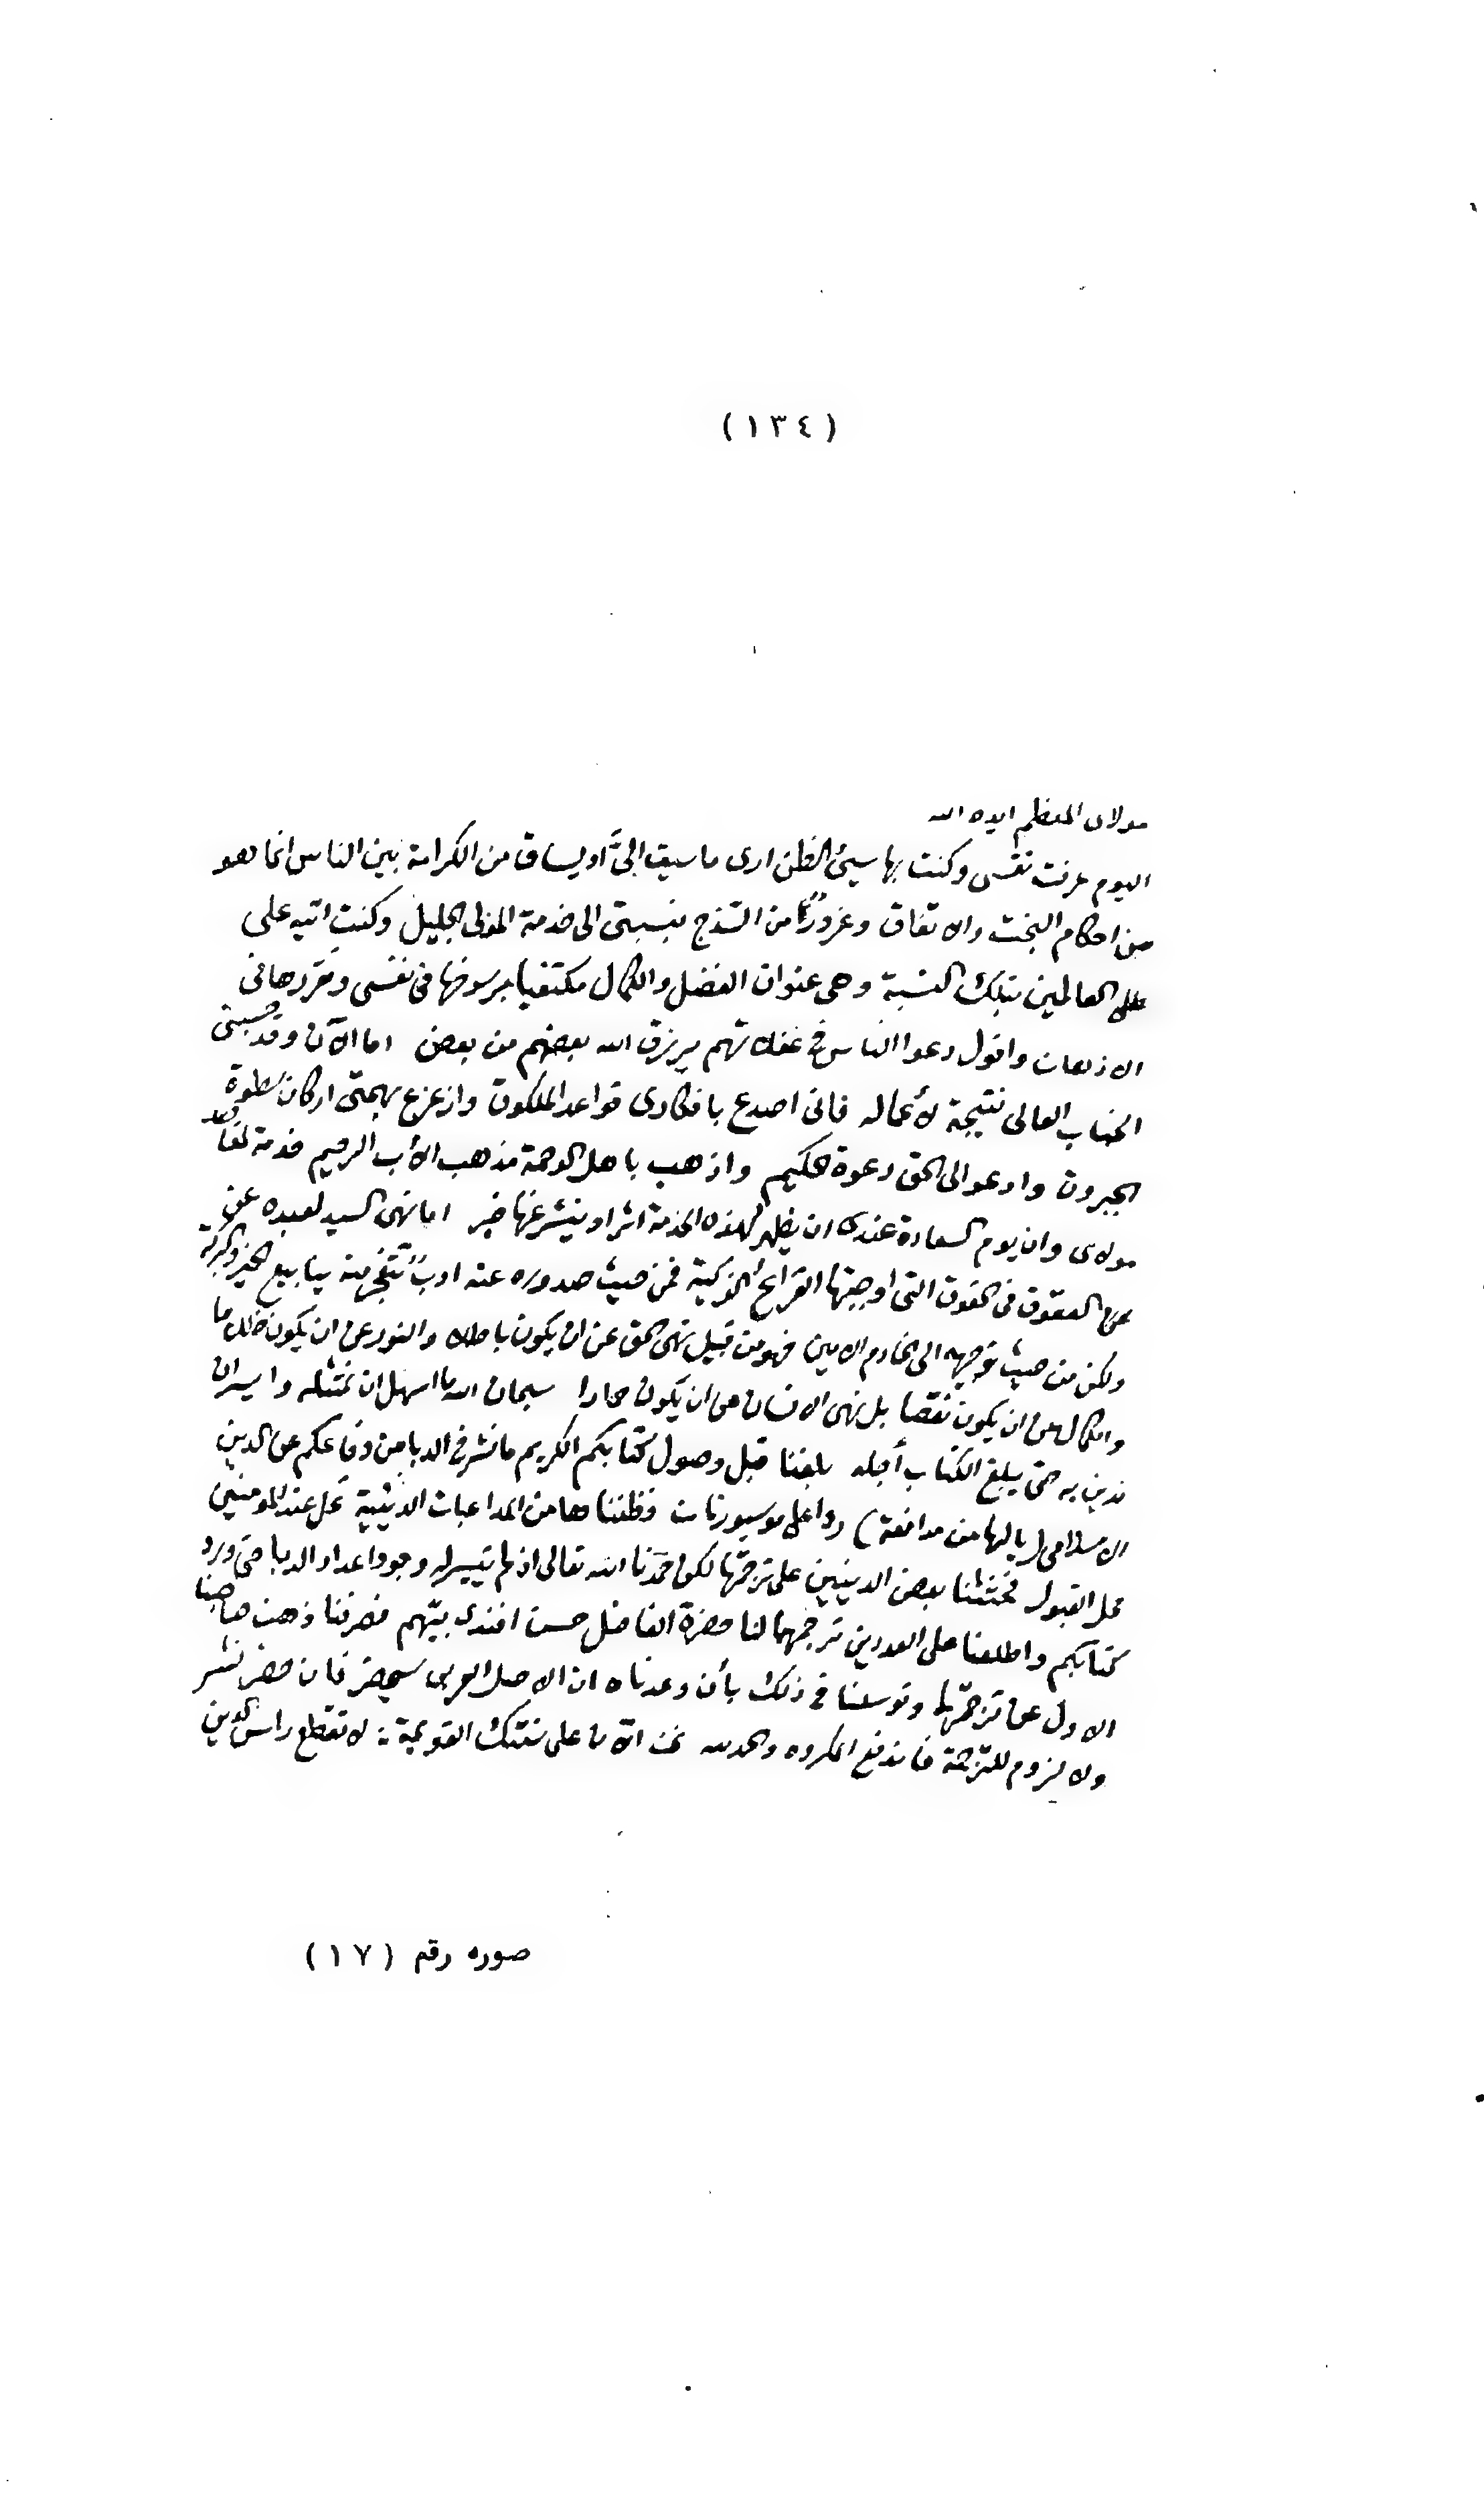 (١٣٤)
مولاى المعظم ايده الله
اليوم عرفت نفسى وكنت بها سيئ الظن ارى ما سيق الىَّ او يساق من الكرامة بين الناس انما هو
من احكام البخت والاتفاق وغرورًا من السذج بنسبتى الى خدمة المولى الجليل وكنت اتيه على
العالمين بتلك النسبة وهى عنوان الفضل والكمال مكتفيا برسوخها فى نفسى وتقررها فى
الاذهان واقول دعوا الناس فى غفلاتهم يرزق الله بعضهم من بعض اما الآن وقد حسبنى
الجناب العالى نتيجة لأعماله فانى اصدع بافكارى قواعد الملكوت وازعزع بهمتى اركان سطوة
الجبروت وادعو الى الحق دعوة الحكيم واذهب باهل الرحمة مذهب الأب الرحيم خدمة لمقاصد
مولاى وان يوم السعادة عندى ان يظهر لهذه الخدمة اثر او ينشر عنها خبر اما نهى السيد لعبده عن
العقوق فى الحقوق التى اوجبتها القرائح الزكية فمن حيث صدوره عنه ادبٌ تتفجر منه ينابيع الخير والبركة
ولكن من حيث توجيهه الى الخادم الامين فهو من قبيل نهى الحق عن ان يكون باطلا والنور عن ان يكون ظلاما
والكمال عن ان يكون نقصا بل نهى الانسان عن ان يكون حمارا سبحان الله ما اسهل ان نمتثله وايسر ان
ندين به حتى يبلغ الكتاب أجله بلغنا قبل وصول كتابكم الكريم ما نشر فى الدبا من دفاعكم عن الدين
الاسلامى (يا لها من مدافعة) ردا على موسيو رنان فظنناها من المداعبات الدينية تحل عند المؤمنين
محل القبول فحثثنا بعض الدينيين على ترجمتها لكن حمدنا الله تعالى اذ لم تتيسر له وجود اعداد الدبا حتى ورد
كتابكم واطلعنا على العددين ترجمهما لنا حضرة الفاضل حسن افندى بيهم فصرفنا ذهن صاحبنا
الاول عن ترجمتها وتوسلنا فى ذلك بأن وعدناه ان الاصل العربى سيحضر فان حضر نشر
ولا لزوم للترجمة فاندفع المكروه والحمد لله نحن الآن على سنتك القويمة : لا تقطع رأس الدين
صوره رقم (١٧)